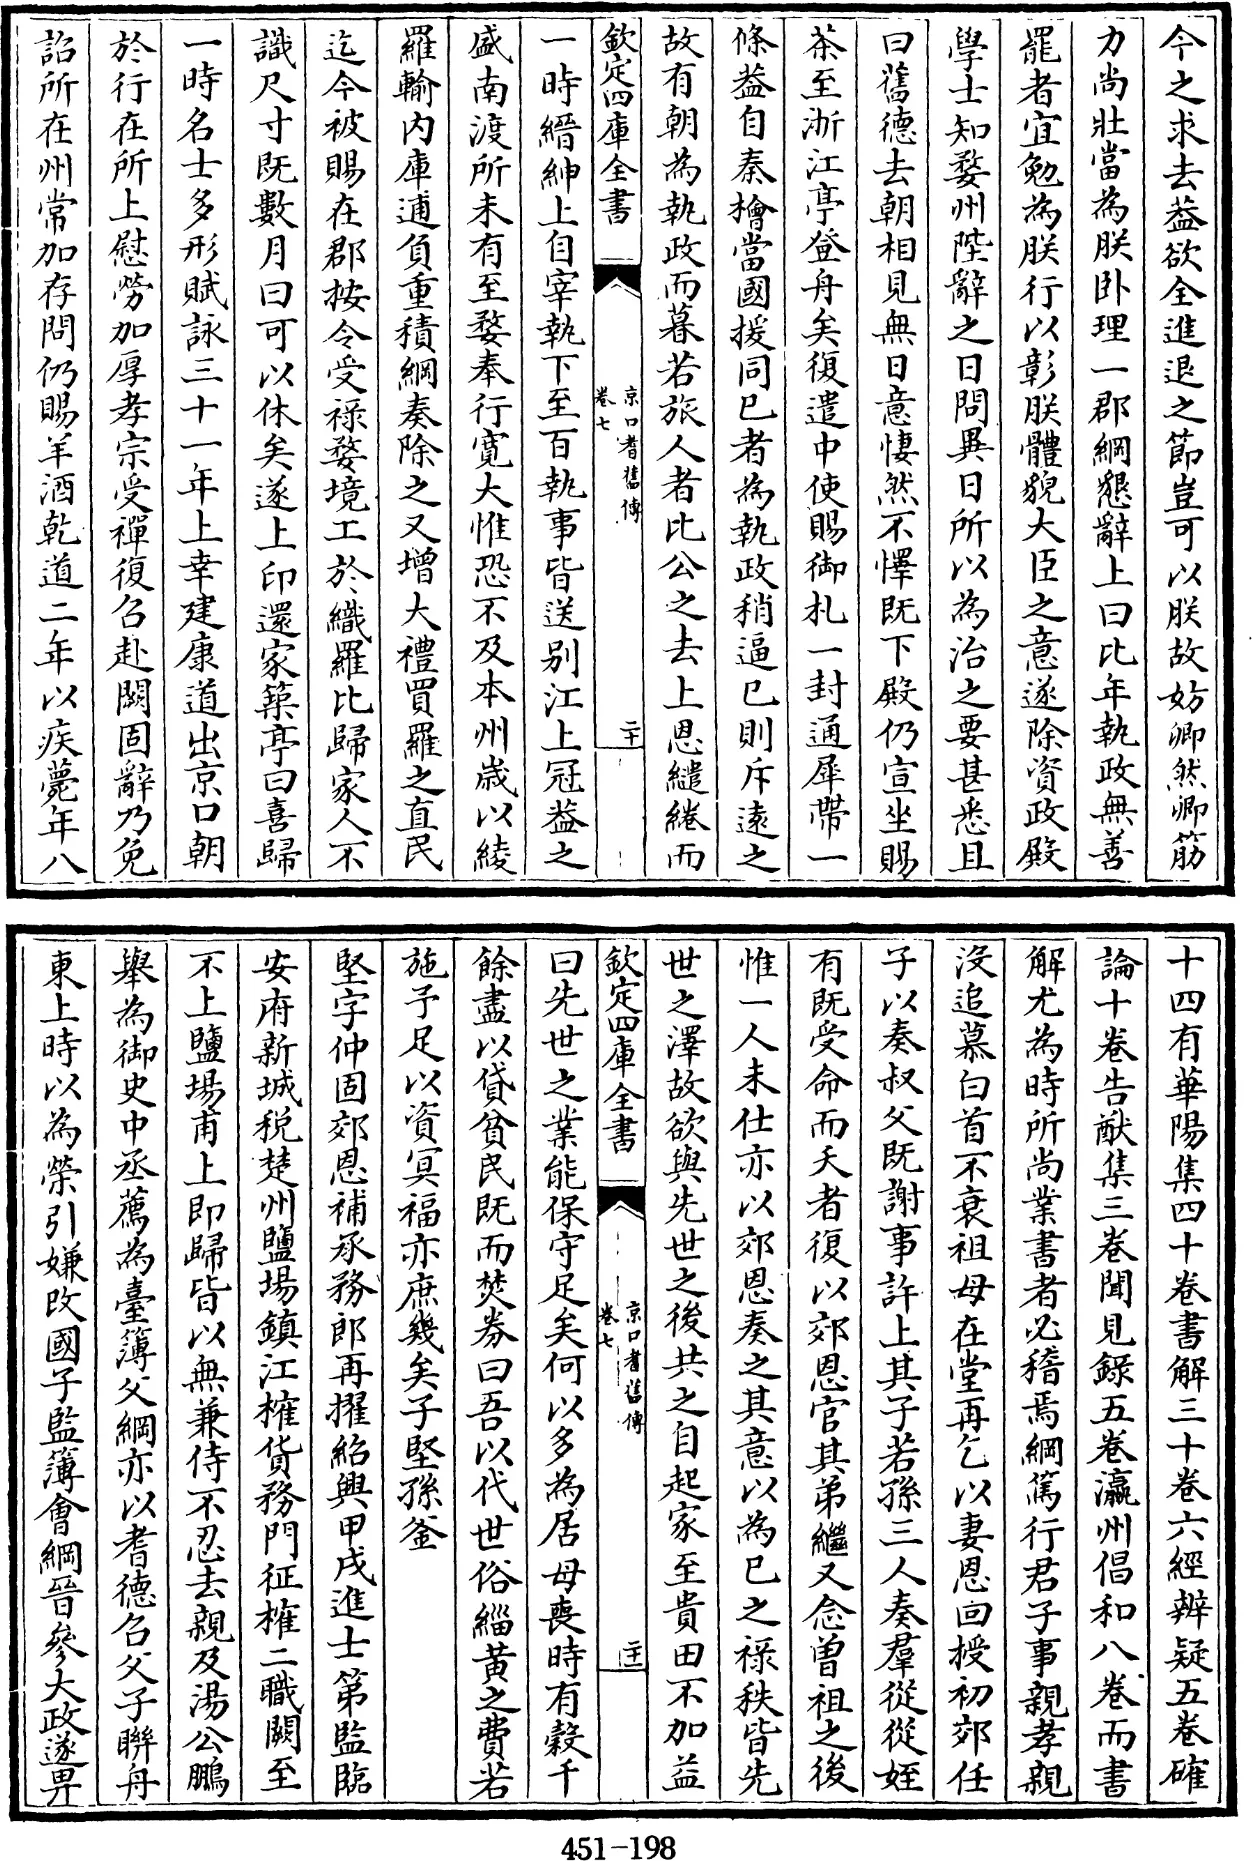 今之求去葢欲全進退之節豈可以朕故妨卿然卿筋
力尚壯當為朕卧理一郡綱懇辭上曰比年執政無善
罷者宜勉為朕行以彰朕體貌大臣之意遂除資政殿
學士知婺州陛辭之日問異日所以為治之要甚悉且
曰舊德去朝相見無日意悽然不懌既下殿仍宣坐賜
茶至浙江亭登舟矣復遣中使賜御札一封通犀帶一
條葢自秦檜當國援同已者為執政稍逼已則斥逺之
故有朝為執政而暮若旅人者比公之去上恩繾綣而
欽定四庫全書
京口耆舊傳
卷七
二十
一時縉紳上自宰執下至百執事皆送别江上冠葢之
盛南渡所未有至婺奉行寛大惟恐不及本州歲以綾
羅輸内庫逋負重積綱奏除之又增大禮買羅之直民
迄今被賜在郡按令受禄婺境工於織羅比歸家人不
識尺寸既數月曰可以休矣遂上印還家築亭曰喜歸
一時名士多形賦詠三十一年上幸建康道出京口朝
於行在所上慰勞加厚孝宗受禪復召赴闕固辭乃免
詔所在州常加存問仍賜羊酒乾道二年以疾薨年八
十四有華陽集四十卷書解三十卷六經辨疑五卷確
論十卷告猷集三卷聞見録五卷瀛州倡和八卷而書
解尤為時所尚業書者必稽焉綱篤行君子事親孝親
沒追慕白首不衰祖母在堂再乞以妻恩回授初郊任
子以奏叔父既謝事許上其子若孫三人奏羣從從姪
有既受命而夭者復以郊恩官其弟繼又念曽祖之後
惟一人未仕亦以郊恩奏之其意以為已之禄秩皆先
世之澤故欲與先世之後共之自起家至貴田不加益
欽定四庫全書
京口耆舊傳
卷七
二十一
曰先世之業能保守足矣何以多為居母喪時有穀千
餘盡以貸貧民既而焚券曰吾以代世俗緇黄之費若
施予足以資冥福亦庶幾矣子堅孫釜
堅字仲固郊恩補承務郎再擢紹興甲戌進士第監臨
安府新城税楚州鹽場鎮江榷貨務門征榷二職闕至
不上鹽場甫上即歸皆以無兼侍不忍去親及湯公鵬
舉為御史中丞薦為臺簿父綱亦以耆德召父子聯舟
東上時以為榮引嫌改國子監簿會綱晉參大政遂畀
451-198